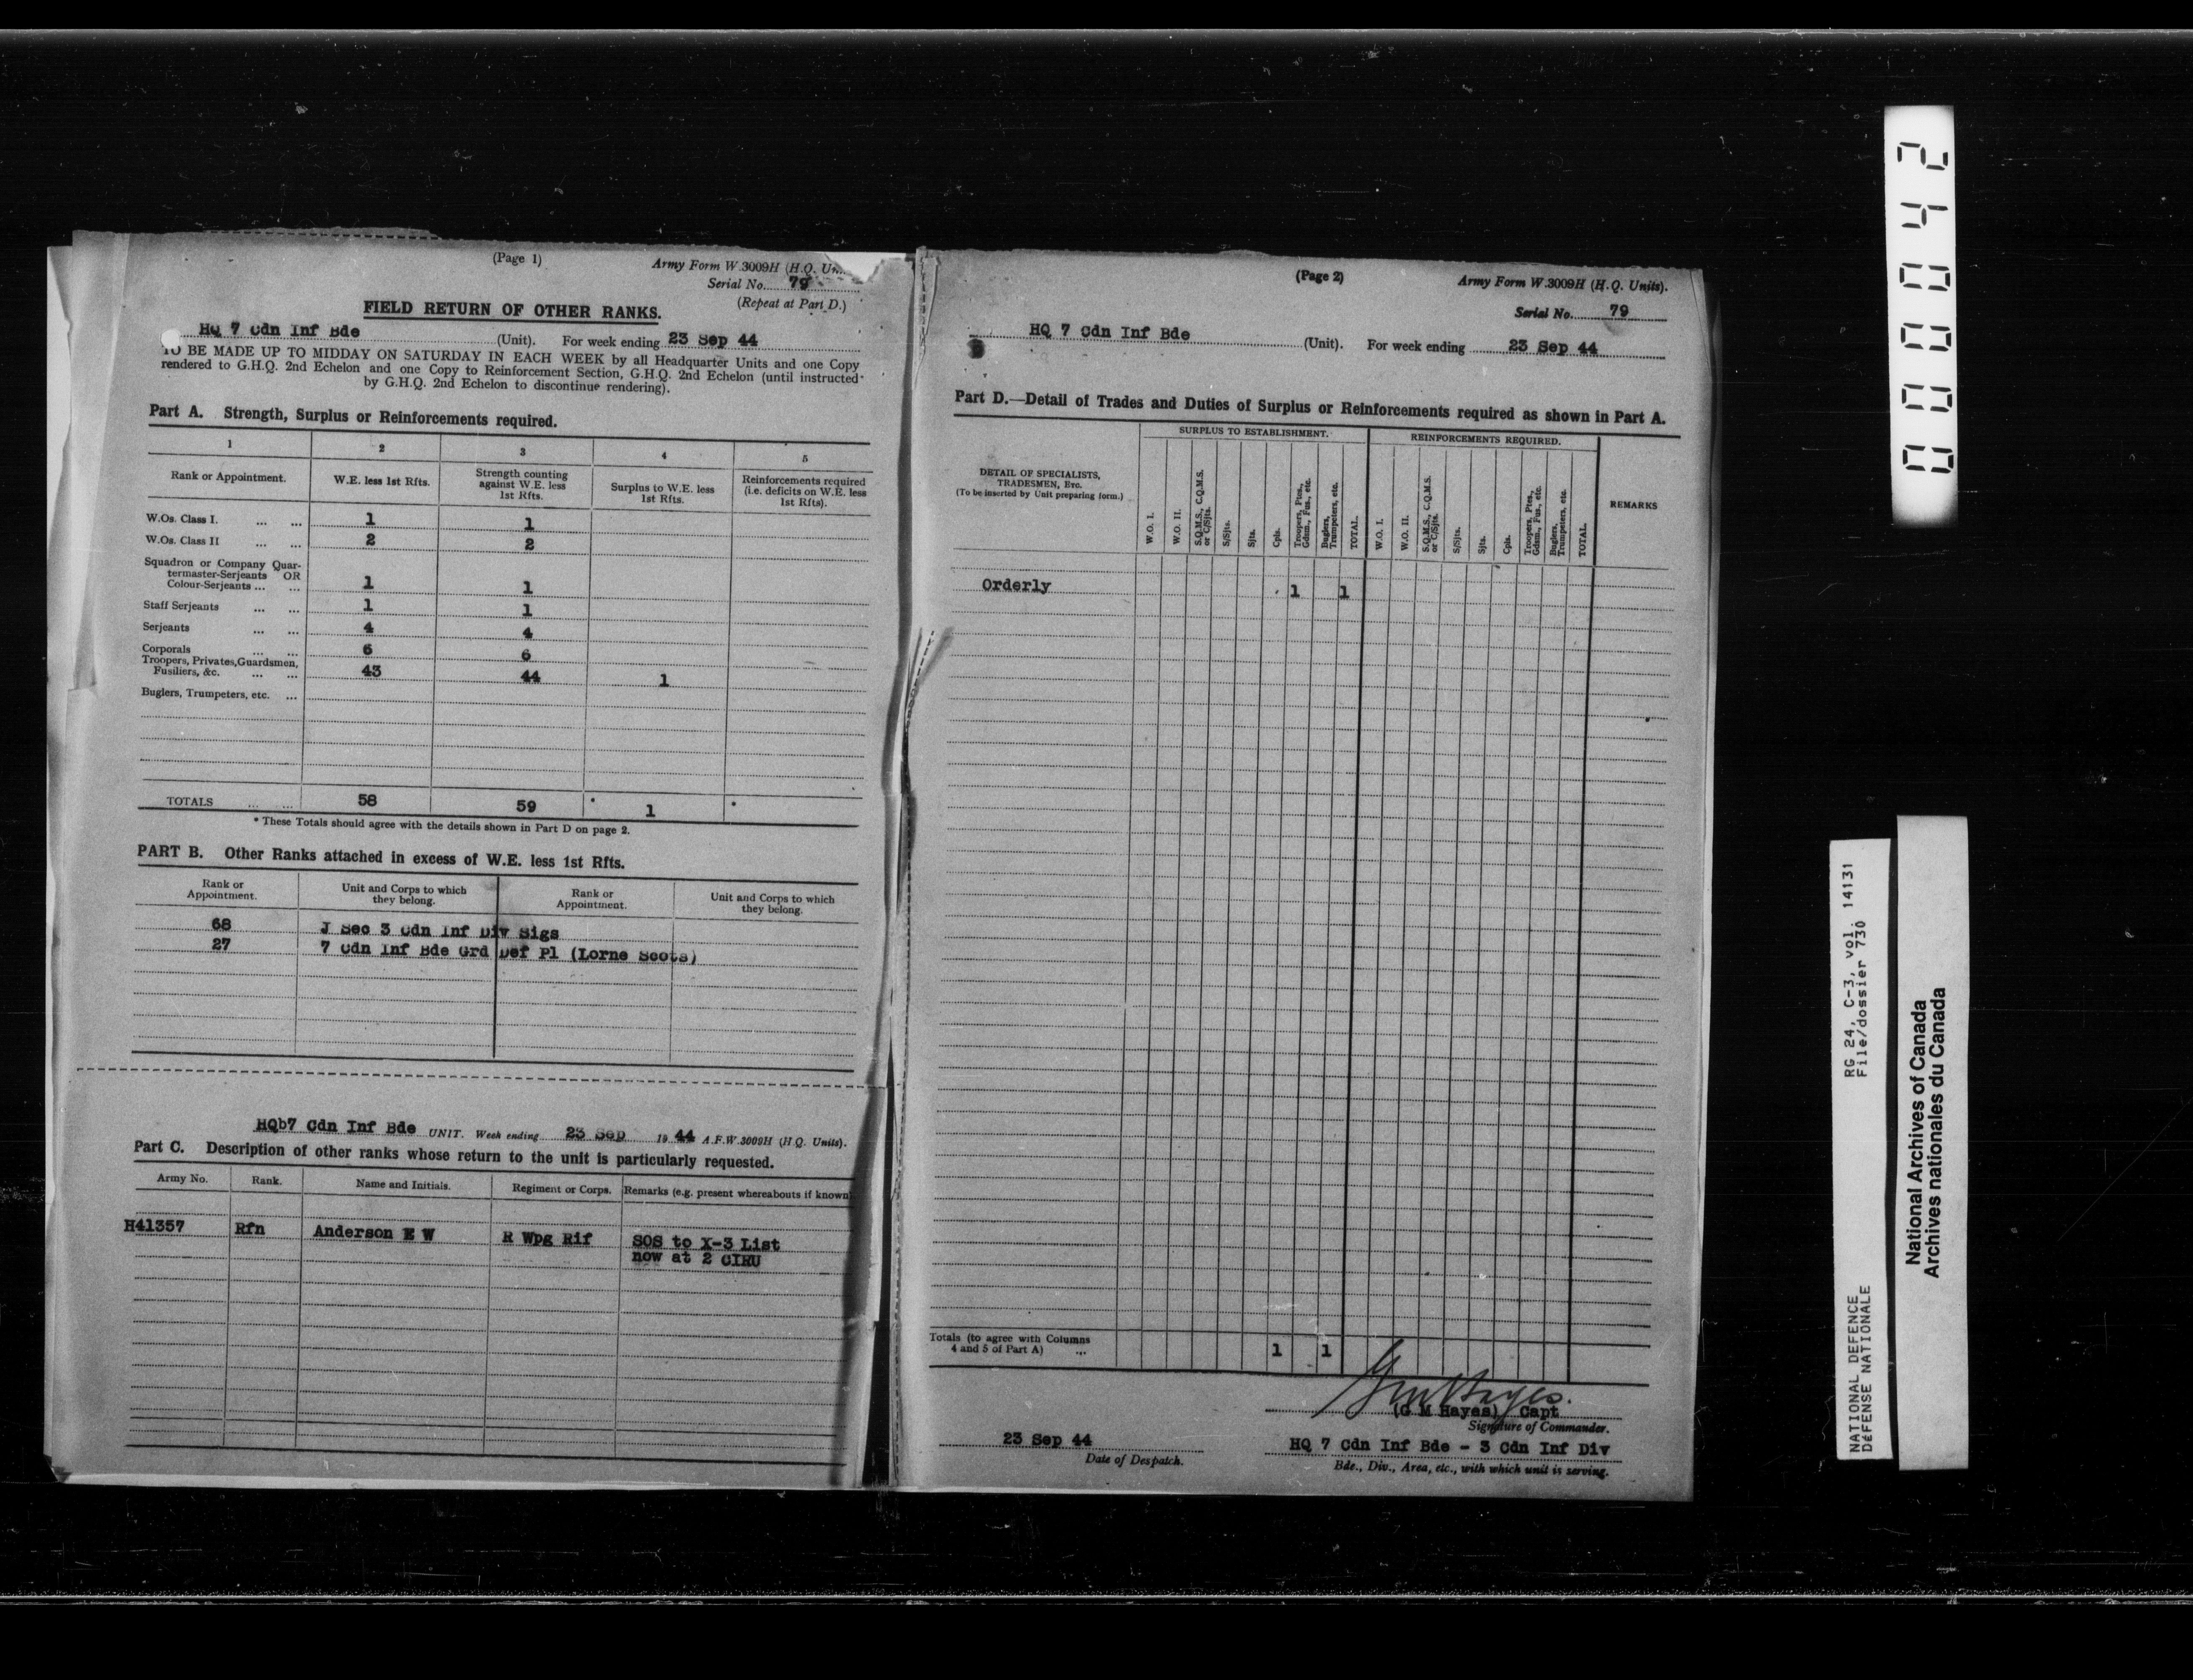 (Page 1)
Army Form W.3009H (H.Q. Un...
Serial No. 79
FIELD RETURN OF OTHER RANKS.
(Repeat at Part D.)
HQ 7 Cdn Inf Bde (Unit). For week ending 23 Sep 44
TO BE MADE UP TO MIDDAY ON SATURDAY IN EACH WEEK by all Headquarter Units and one Copy
rendered to G.H.Q. 2nd Echelon and one Copy to Reinforcement Section, G.H.Q. 2nd Echelon (until instructed
by G.H.Q. 2nd Echelon to discontinue rendering).
Part A. Strength, Surplus or Reinforcements required.
1 2 3 4 5
Rank or Appointment. W.E. less 1st Rfts. Strength counting against W.E. less 1st Rfts. Surplus to W.E. less 1st Rfts. Reinforcements required (i.e. deficits on W.E. less 1st Rfts).
W.Os. Class I. ... ... 1 1
W.Os. Class II ... ... 2 2
Squadron or Company Quar-
termaster-Serjeants OR
Colour-Serjeants ... ... 1 1
Staff Serjeants ... ... 1 1
Serjeants ... ... 4 4
Corporals ... ... 6 6
Troopers, Privates, Guardsmen,
Fusiliers, &c. ... ... 43 44 1
Buglers, Trumpeters, etc. ...
TOTALS ... ... 58 59 * 1 *
* These Totals should agree with the details shown in Part D on page 2.
PART B. Other Ranks attached in excess of W.E. less 1st Rfts.
Rank or Appointment. Unit and Corps to which they belong. Rank or Appointment. Unit and Corps to which they belong.
68 J Sec 3 Cdn Inf Div Sigs
27 7 Cdn Inf Bde Grd Def Pl (Lorne Scots)
HQb7 Cdn Inf Bde UNIT. Week ending 23 Sep 19 44 A.F.W.3009H (H.Q. Units).
Part C. Description of other ranks whose return to the unit is particularly requested.
Army No. Rank. Name and Initials. Regiment or Corps. Remarks (e.g. present whereabouts if known)
H41357 Rfn Anderson E W R Wpg Rif SOS to X-3 List
now at 2 CIRU
(Page 2)
Army Form W.3009H (H.Q. Units).
Serial No. 79
HQ 7 Cdn Inf Bde (Unit). For week ending 23 Sep 44
Part D.—Detail of Trades and Duties of Surplus or Reinforcements required as shown in Part A.
DETAIL OF SPECIALISTS,
TRADESMEN, ETC.
(To be inserted by Unit preparing form.)
SURPLUS TO ESTABLISHMENT. REINFORCEMENTS REQUIRED. REMARKS
W.O. I. W.O. II. S.Q.M.S., C.Q.M.S. or C/Sjts. S/Sjts. Sjts. Cpls. Troopers, Ptes., Gdsm., Fus., etc. Buglers, Trumpeters, etc. TOTAL.
W.O. I. W.O. II. S.Q.M.S., C.Q.M.S. or C/Sjts. S/Sjts. Sjts. Cpls. Troopers, Ptes., Gdsm., Fus., etc. Buglers, Trumpeters, etc. TOTAL.
Orderly 1 1
Totals (to agree with Columns
4 and 5 of Part A) ... 1 1
GM Hayes.
(G M Hayes) Capt
Signature of Commander.
23 Sep 44
Date of Despatch.
HQ 7 Cdn Inf Bde - 3 Cdn Inf Div
Bde., Div., Area, etc., with which unit is serving.
000042
RG 24, C-3, vol. 14131
File/dossier 730
NATIONAL DEFENCE
DÉFENSE NATIONALE
National Archives of Canada
Archives nationales du Canada